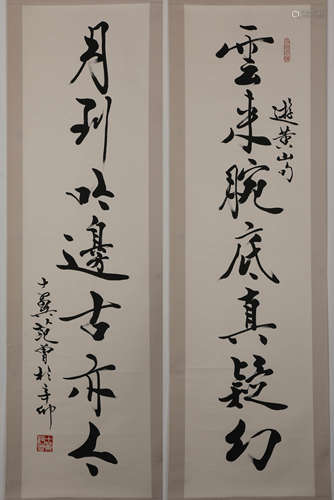 雲来腕底真疑幻
遊黄山句
月到吟邊古亦今
十翼范曾於辛卯